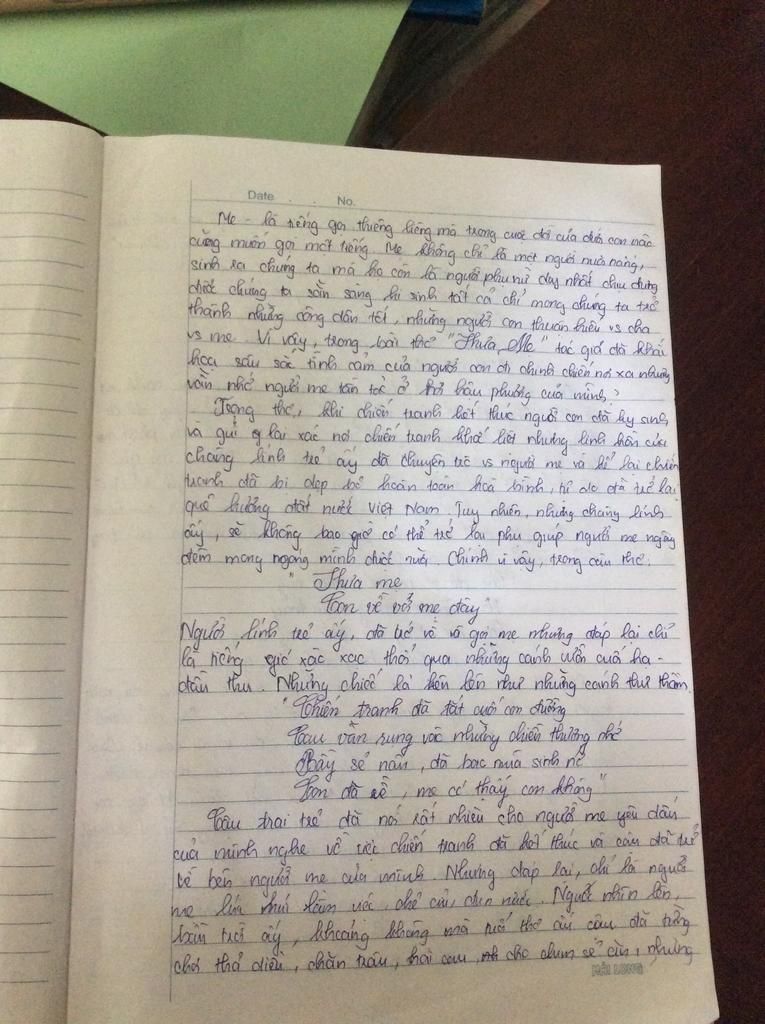 Date . . No.
Mẹ - là tiếng gọi thiêng liêng mà trong cuộc đời của đứa con nào
cũng muốn gọi một tiếng. Mẹ không chỉ là một người mang nặng,
sinh ra chúng ta mà họ còn là người phụ nữ duy nhất chịu đựng
được chúng ta sẵn sàng hi sinh tất cả chỉ mong chúng ta trở
thành những công dân tốt, những người con thuận hiếu vs cha
vs mẹ. Vì vậy, trong bài thơ "Thưa Mẹ" tác giả đã khái
họa sâu sắc tình cảm của người con đi chinh chiến nơi xa nhưng
vẫn nhớ người mẹ tần tảo ở hậu phương của mình.
Trong thơ, khi chiến tranh kết thúc người con đã hy sinh,
và gửi lại xác nơi chiến tranh khốc liệt nhưng linh hồn của
chàng lính trẻ ấy đã chuyện trò vs người mẹ và kể lại chiến
tranh đã bị dẹp bỏ hoàn toàn hoà bình, tự do đã trở lại
quê hương đất nước Việt Nam. Tuy nhiên, những chàng lính
ấy, sẽ không bao giờ có thể trở lại phụ giúp người mẹ ngày
đêm mong ngóng mình được nữa. Chính vì vậy, trong câu thơ:
"Thưa mẹ
Con về với mẹ đây"
Người lính trẻ ấy, đã trở về và gọi mẹ nhưng đáp lại chỉ
là tiếng gió xào xạc thổi qua những cánh cuối hạ -
đầu thu. Những chiếc lá lên như những cánh thư thầm.
"Chiến tranh đã tắt cuối con đường
Cau vẫn rụng vào những chiến thương nhớ
Bầy sẻ nâu, đã bao mùa sinh nở
Con đã về, mẹ có thấy con không"
Cậu trai trẻ đã nói rất nhiều cho người mẹ yêu dấu
của mình nghe về việc chiến tranh đã kết thúc và cậu đã trở
về bên người mẹ của mình. Nhưng đáp lại, chỉ là người
mẹ làm việc, chẻ củi, đun nước. Người nhìn lên,
bầu trời ấy, khoảng không mà tuổi thơ ấu cậu đã từng
chơi thả diều, chăn trâu, hái cau, cho chim sẻ ăn, nhưng
HẢI LONG